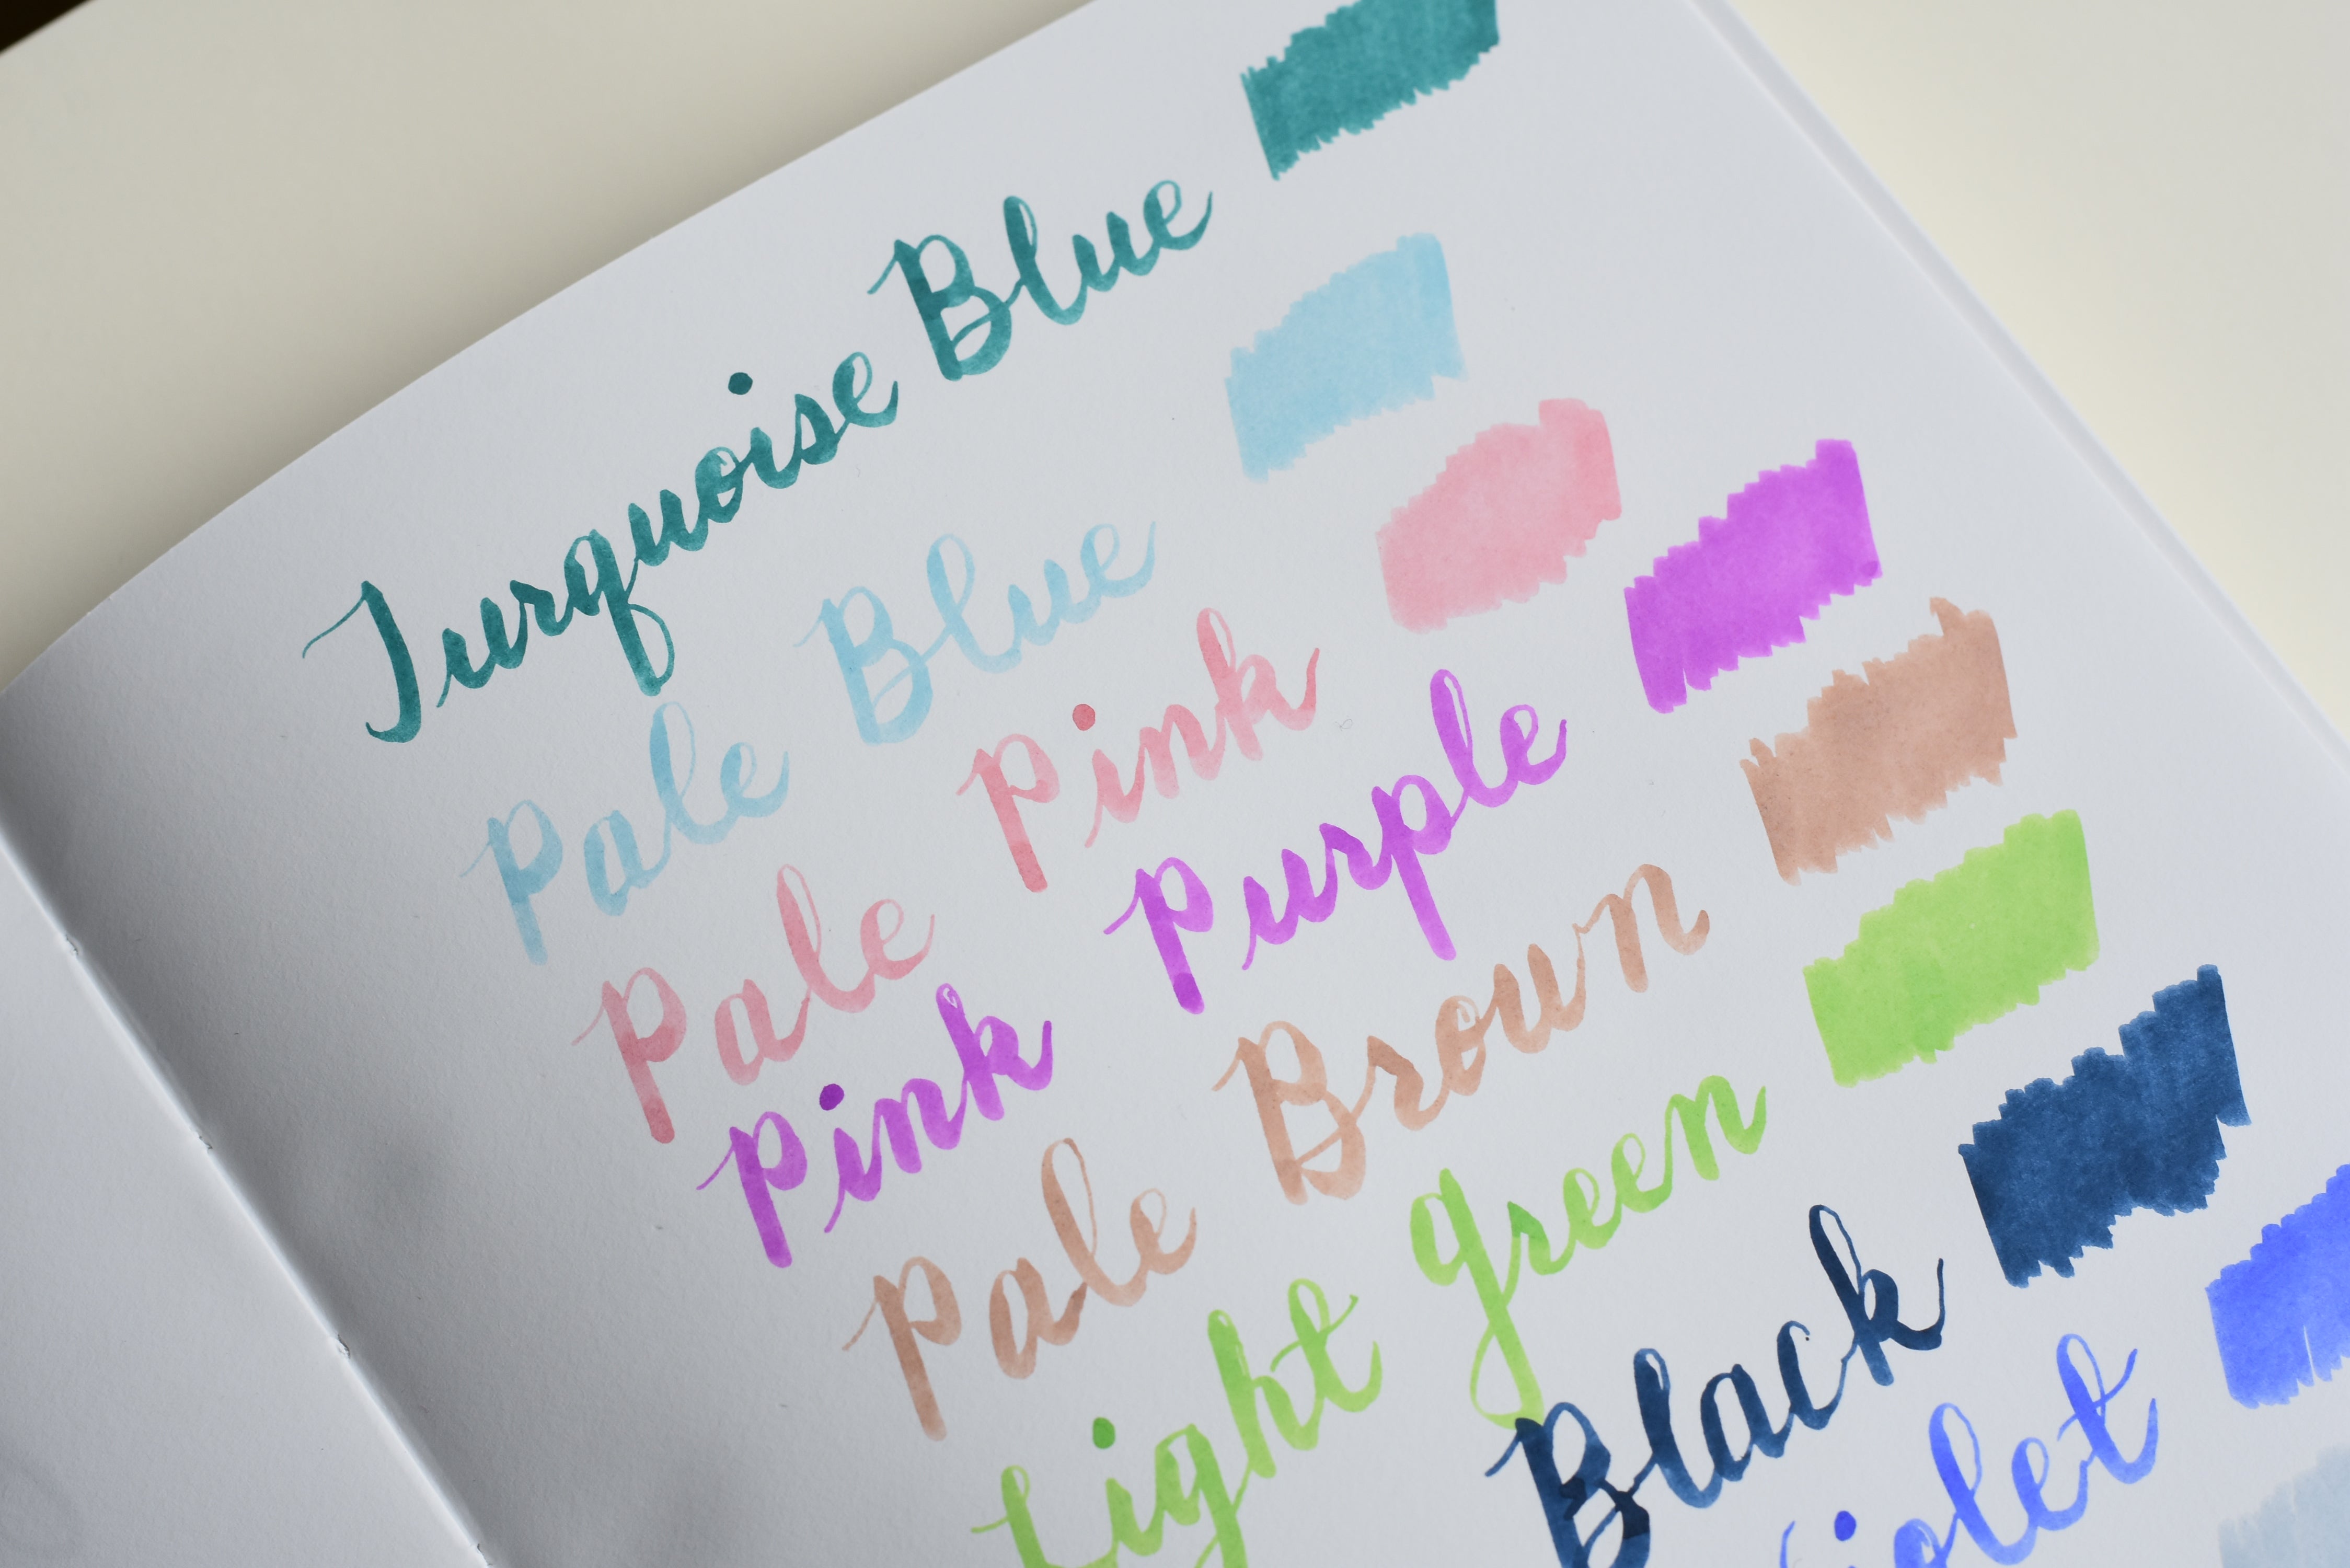 Turquoise Blue
Pale Blue
Pale Pink
Pink Purple
Pale Brown
Light Green
Black
Violet